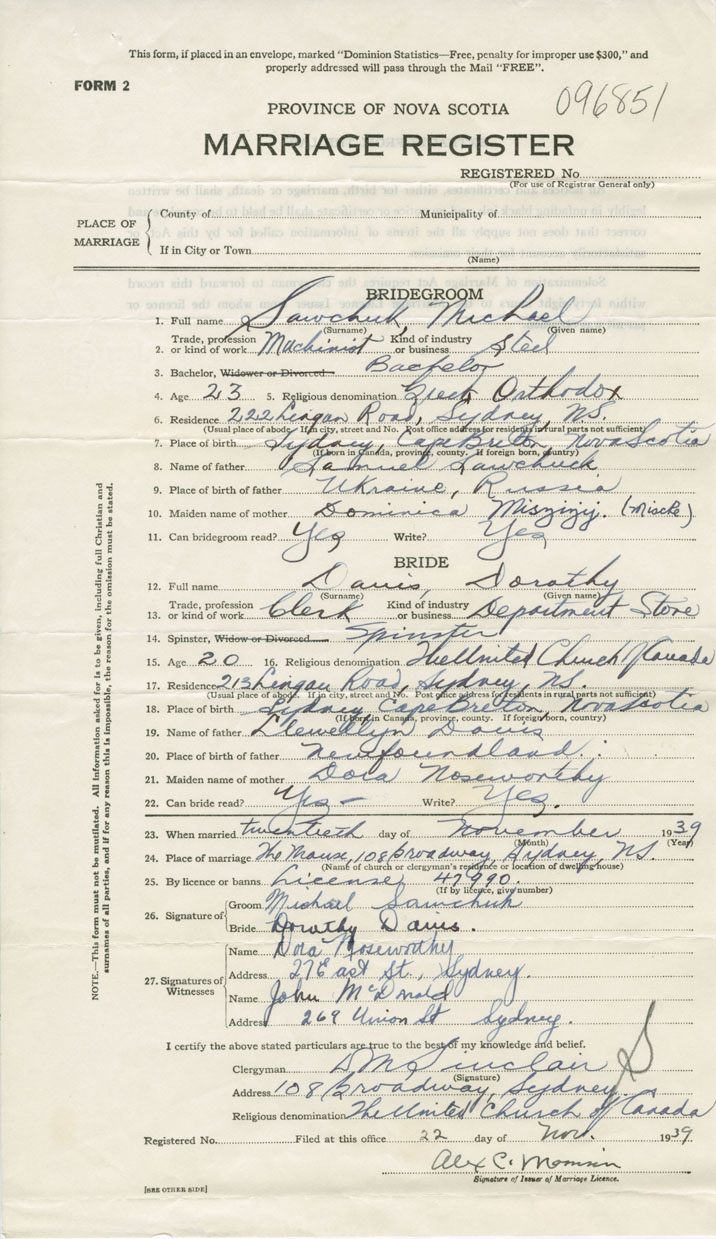 This form, if placed in an envelope, marked "Dominion Statistics—Free, penalty for improper use $300," and
properly addressed will pass through the Mail "FREE".
FORM 2
096851
PROVINCE OF NOVA SCOTIA
MARRIAGE REGISTER
REGISTERED No.
(For use of Registrar General only)
PLACE OF MARRIAGE
County of Municipality of
If in City or Town
(Name)
BRIDEGROOM
1. Full name Sawchuk, Michael
(Surname) (Given name)
2. Trade, profession or kind of work Machinist Kind of industry or business Steel
3. Bachelor, Widower or Divorced Bachelor
4. Age 23 5. Religious denomination Greek Orthodox
6. Residence 222 Lingan Road, Sydney, NS.
(Usual place of abode. If in city, street and No. Post office address for residents in rural parts not sufficient)
7. Place of birth Sydney, Cape Breton, Nova Scotia
(If born in Canada, province, county. If foreign born, country)
8. Name of father Samuel Sawchuck
9. Place of birth of father Ukraine, Russia
10. Maiden name of mother Dominica
11. Can bridegroom read? Yes Write? Yes
BRIDE
12. Full name Davis, Dorothy
(Surname) (Given name)
13. Trade, profession or kind of work Clerk Kind of industry or business Department Store
14. Spinster, Widow or Divorced Spinster
15. Age 20 16. Religious denomination The United Church of Canada
17. Residence 213 Lingan Road, Sydney, NS.
(Usual place of abode. If in city, street and No. Post office address for residents in rural parts not sufficient)
18. Place of birth Sydney, Cape Breton, Nova Scotia
(If born in Canada, province, county. If foreign born, country)
19. Name of father Llewellyn Davis
20. Place of birth of father Newfoundland
21. Maiden name of mother Dora Noseworthy
22. Can bride read? Yes Write? Yes.
23. When married twentieth day of November 1939
(Month) (Year)
24. Place of marriage The Manse, 108 Broadway, Sydney, NS.
(Name of church or clergyman's residence or location of dwelling house)
25. By licence or banns License 47990.
(If by licence, give number)
26. Signature of
Groom Michael Sawchuk
Bride Dorothy Davis.
27. Signatures of Witnesses
Name Dora Noseworthy
Address 27 East St., Sydney.
Name John McDonald
Address 269 Union St Sydney.
I certify the above stated particulars are true to the best of my knowledge and belief.
Clergyman D M Sinclair
(Signature)
Address 108 Broadway, Sydney
Religious denomination The United Church of Canada
Registered No. Filed at this office 22 day of Nov. 1939
Alex C.
Signature of Issuer of Marriage Licence.
[SEE OTHER SIDE]
NOTE.—This form must not be mutilated. All information asked for is to be given, including full Christian and
surnames of all parties, and if for any reason this is impossible, the reason for the omission must be stated.